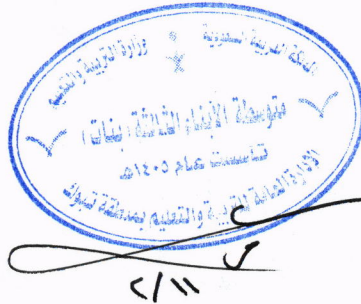 المملكة العربية السعودية
وزارة التربية والتعليم
متوسطة الأبناء الثالثة (بنات)
تأسست عام ١٤٠٥هـ
الإدارة العامة للتربية والتعليم بمنطقة تبوك
١١/٢